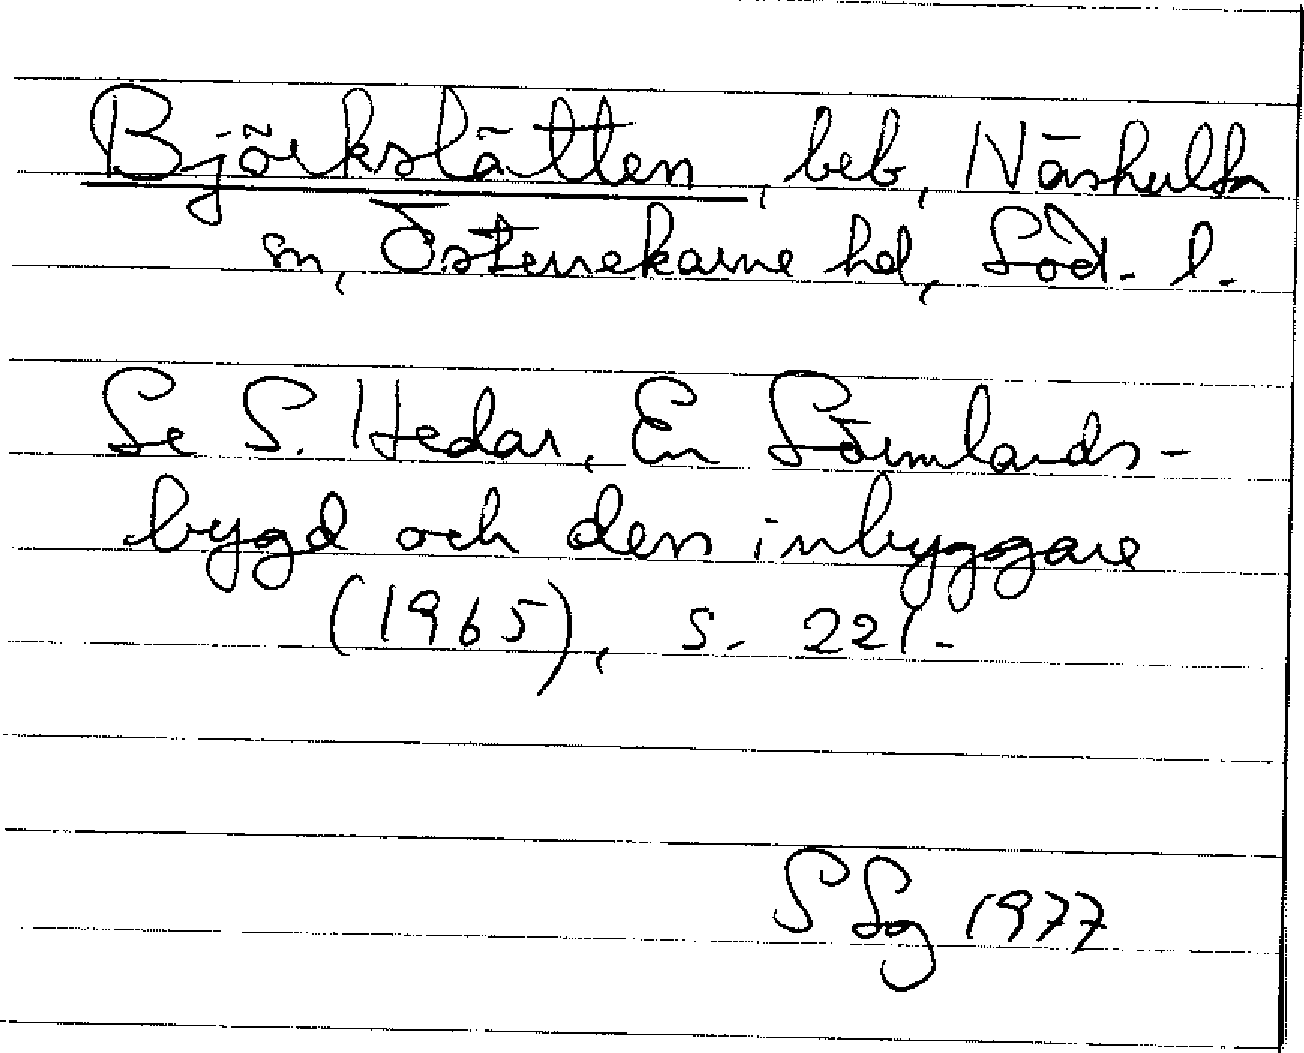 Björkslätten, beb, Näshulta
sn, Österrekarne hd, Söd. l.
Se S. Hedar, En Sörmlands-
bygd och dess inbyggare
(1965), s. 221.
SSg 1977